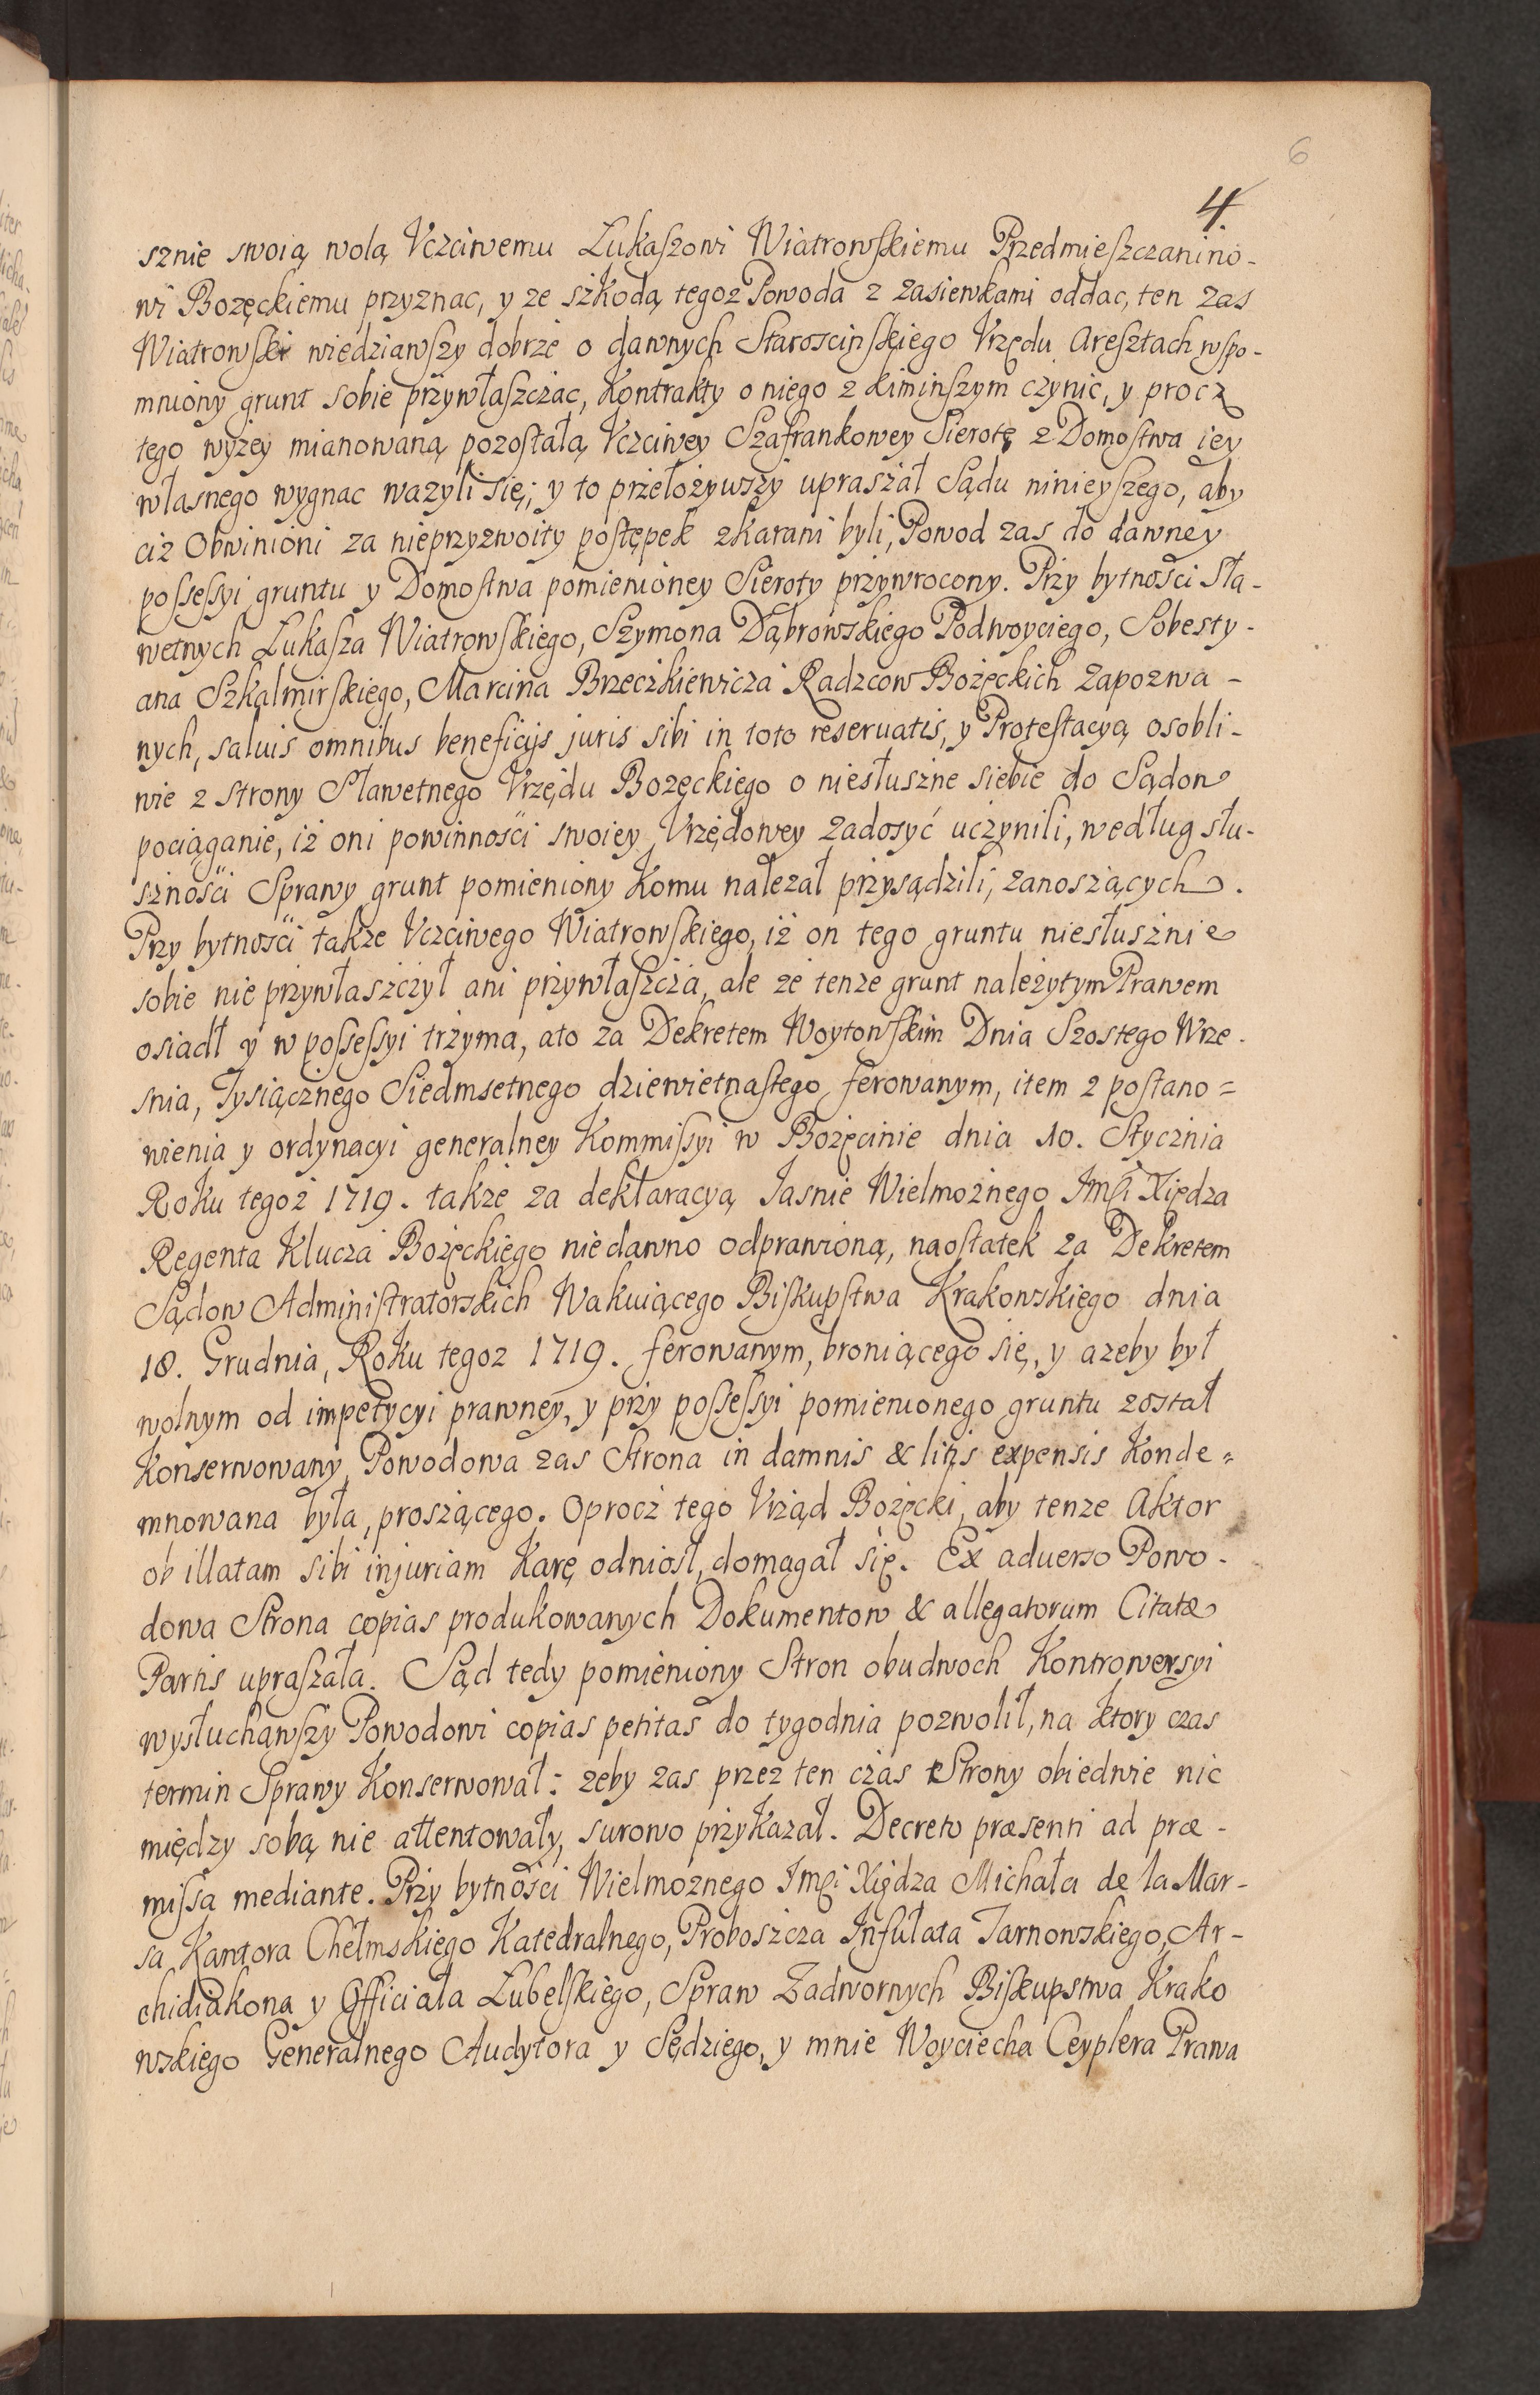 6
4.
sznie swoią wolą Vczciwemu Łukaszowi Wiatrowskiemu Przedmieszczanino-
wi Bozęckiemu przyznac, y ze szkodą tegoz Powoda z zasiewkami oddac, ten zas
Wiatrowski wiedziawszy dobrze o dawnych Staroscinskiego Vrzędu Aresztach wspo-
mniony grunt sobie przywłaszczac, Kontrakty o niego z kiminszym czynic, y procz
tego wyzey mianowaną pozostałą Vczciwey Szafrankowey Sierotę z Domostwa iey
własnego wygnac wazyli się; y to przełożywszy upraszał Sądu ninieyszego, aby
ciz Obwinioni za nieprzyzwoity postępek zkarani byli, Powod zas do dawney
possessyi gruntu y Domostwa pomienioney Sieroty przywrocony. Przy bytności Sła-
wetnych Łukasza Wiatrowskiego, Szymona Dąbrowskiego Podwoyciego, Sobesty-
ana Szkalmirskiego, Marcina Brzeczkiewicza Radzcow Bożęckich Zapozwa-
nych, saluis omnibus beneficijs juris sibi in toto reseruatis, y Protestacyą osobli-
wie z strony Sławetnego Vrzędu Bozęckiego o niesłuszne siebie do Sądow
pociąganie, iż oni powinności swoiey Vrzędowey zadosyć uczynili, według słu-
szności Sprawy grunt pomieniony komu nalezał przysądzili, zanoszących.
Przy bytności także Vczciwego Wiatrowskiego, iż on tego gruntu niesłusznie
sobie nie przywłaszczył ani przywłaszcza, ale że tenze grunt należytym Prawem
osiadł y w possessyi trzyma, ato za Dekretem Woytowskim Dnia Szostego Wrze-
snia, Tysiącznego Siedmsetnego dziewietnastego ferowanym, item z postano=
wienia y ordynacyi generalney Kommissyi w Bożęcinie dnia 10. Stycznia
Roku tegoż 1719. także za deklaracyą Iasnie Wielmożnego Imsi Xiędza
Regenta Klucza Bożęckiego niedawno odprawioną, naostatek za Dekretem
Sądow Administratorskich Wakuiącego Biskupstwa Krakowskiego dnia
18. Grudnia, Roku tegoz 1719. ferowanym, broniącego się, y azeby był
wolnym od impetycyi prawney, y przy possessyi pomienionego gruntu został
Konserwowany, Powodowa zas Strona in damnis & litis expensis Konde=
mnowana była, proszącego. Oprocz tego Vrząd Bożęcki, aby tenze Aktor
ob illatam sibi injuriam Karę odniosł, domagał się. Ex aduerso Powo-
dowa Strona copias produkowanych Dokumentow & allegatorum Citatæ
Partis upraszała. Sąd tedy pomieniony Stron obudwoch Kontrowersyi
wysłuchawszy Powodowi copias petitas do tygodnia pozwolił, na ktory czas
termin Sprawy Konserwował: zeby zas przez ten czas Strony obiedwie nic
między sobą nie attentowały, surowo przykazał. Decreto præsenti ad præ-
missa mediante. Przy bytności Wielmożnego Imsi Xiędza Michała de la Mar-
sa Kantora Chełmskiego Katedralnego, Proboszcza Infułata Tarnowskiego, Ar-
chidiakona y Officiała Lubelskiego, Spraw Zadwornych Biskupstwa Krako
wskiego Generalnego Audytora y Sędziego, y mnie Woyciecha Ceyplera Prawa